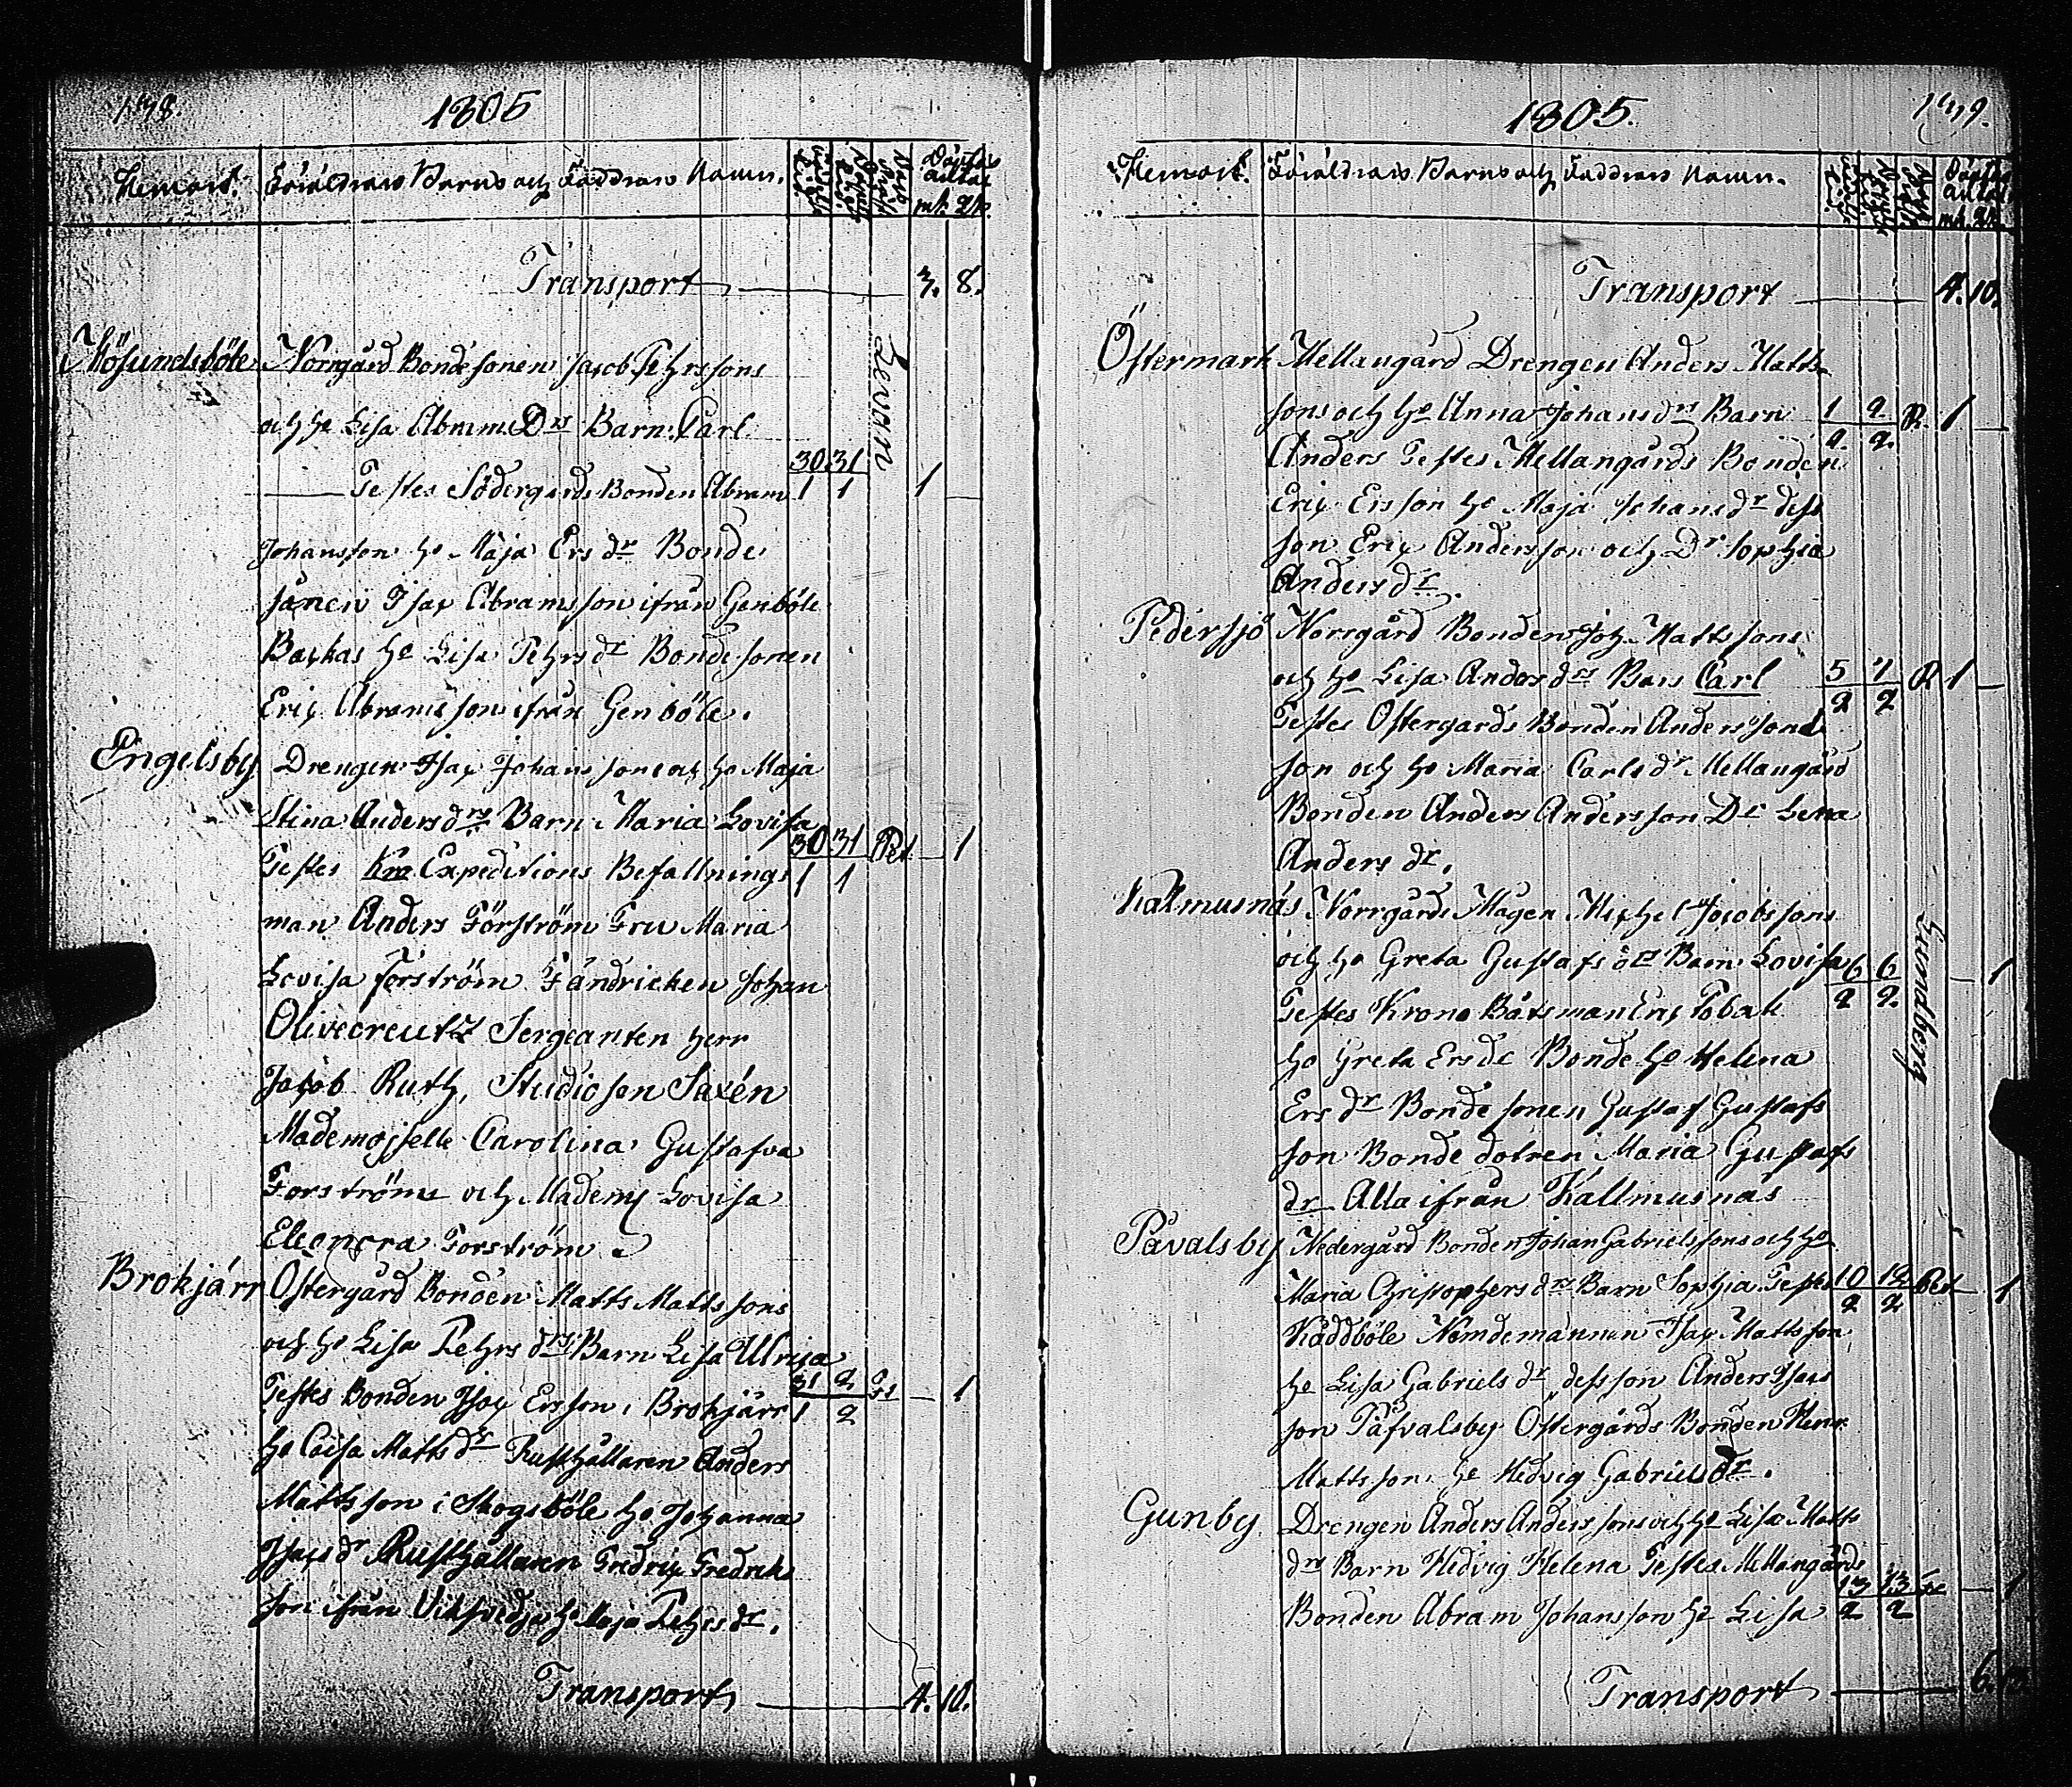 148. 1805
Hemort. Föräldrars Barns och Faddrars Namn. Döptas antal
mk. Qk.
Transport 3. 8.
Mösundsböle Norrgård Bondesonen Jacob Pehrssons
och ho Lisa Abrams Drs Barn Carl
30 31
Testes Södergårds Bonden Abram 1 1 1
Johansson ho Maja Ers dr Bonde
sånen Isac Abramsson ifrån Genböle
Backas ho Lisa Pehrs dr Bondesonen
Eric Abramsson ifrån Genböle.
Engelsby Drengen Isac Johanssons och ho Maja
Stina Anders drs Barn Maria Lovisa
30 31 Pet. 1
Testes Kro Expeditions Befallnings 1 1
man Anders Förström Fru Maria
Lovisa Forström Fändricken Johan
Olivecreutz Sergeanten Herr
Jacob Ruth, Studioson Saxén
Mademoisselle Carolina Gustafva
Forström och Madems Lovisa
Eleonora Forström
Brokjärr Ostergård Bonden Matts Mattssons
och ho Lisa Pehrs drs Barn Lisa Ulrica
31 2 1
Testes Bonden Isac Ersson i Brokjärr 1 2
ho Caisa Matts dr Rusthållaren Anders
Mattsson i Skogsböle ho Johanna
Isacs dr Rusthållaren Fredric Fredrik
son ifrån Viksvedja ho Maja Pehrs dr.
Transport 4. 10.
149. 1805.
Hemort. Föräldrars Barns och Faddrars Namn. Döptas antal
mk. Qk.
Transport 4. 10.
Östermark Mellangård Drengen Anders Matts
sons och ho Anna Johans drs Barn 1 2 R. 1
2. 2.
Anders Testes Mellangårds Bonden
Eric Ersson ho Maja Johans dr dess
son Eric Andersson och Dr Sophia
Anders dr.
Pedersjö Norrgård Bonden Joh. Mattssons
och ho Lisa Anders drs Barn Carl 5 7 R 1
2 2
Testes Ostergårds Bonden Anders
son och ho Maria Carls dr Mellangård
Bonden Anders Andersson Dr Lena
Anders dr.
Kalmusnäs Norrgårds Mågen Michel Jacobssons
och ho Greta Gustafs drs Barn Lovisa 6 6 1
2 2.
Testes Krono Båtsman Eric Tobak
ho Greta Ers dr Bonde ho Helena
Ers dr Bonde sonen Gustaf Gustafs
son Bonde dotren Maria Gustafs
dr Alla ifrån Kallmusnäs
Lundberg
Påvalsby Nedergård Bonden Johan Gabrielssons och ho
Maria Christophers drs Barn Sophia Testes 10 12 Pet 1
2 2
Kåddböle Nämdemannen Isac Mattsson
ho Lisa Gabriels dr dess son Anders Isacs
son Påfvalsby Ostergårds Bonden Henr.
Mattsson ho Hedvig Gabriels dr.
Gunby Drengen Anders Anderssons och ho Lisa Matts
drs Barn Hedvig Helena Testes Mellangårds
13 13 1
Bonden Abram Johansson ho Lisa 2 2
Transport 6.